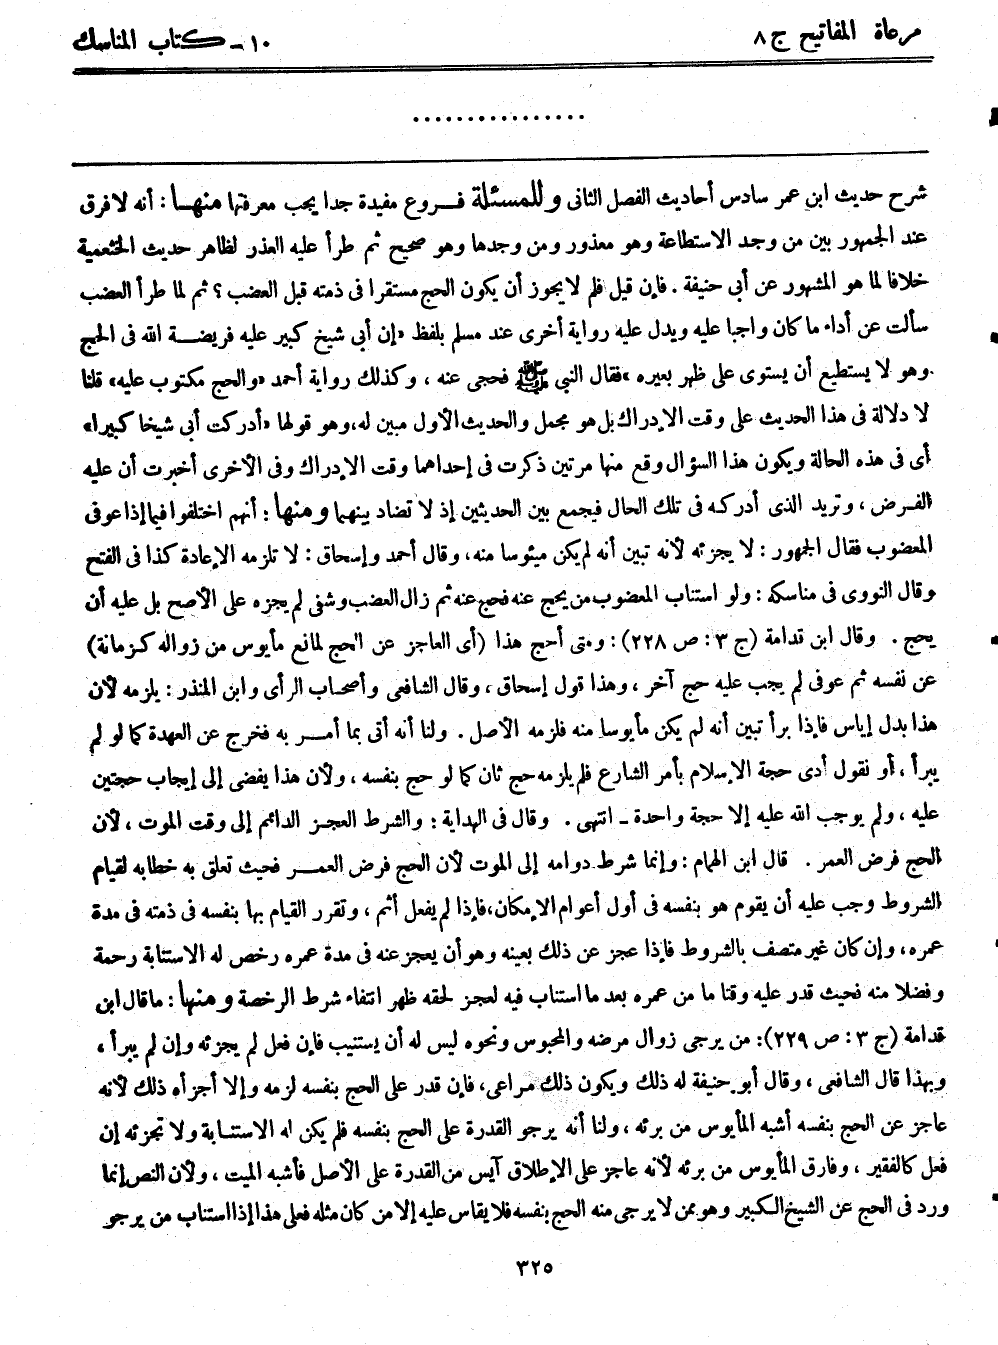 مرعاة المفاتيح ج ٨
١٠ - كتاب المناسك
................
شرح حديث ابن عمر سادس أحاديث الفصل الثانى وللمسئلة فروع مفيدة جدا يجب معرفتها منها: أنه لا فرق
عند الجمهور بين من وجد الاستطاعة وهو معذور ومن وجدها وهو صحيح ثم طرأ عليه العذر لظاهر حديث الخثعمية
خلافا لما هو المشهور عن أبى حنيفة . فإن قيل فلم لا يجوز أن يكون الحج مستقرا فى ذمته قبل العضب ؟ ثم لما طرأ العضب
سألت عن أداء ما كان واجبا عليه ويدل عليه رواية أخرى عند مسلم بلفظ «إن أبى شيخ كبير عليه فريضة الله فى الحج
وهو لا يستطيع أن يستوى على ظهر بعيره» فقال النبى ﷺ فحجى عنه ، وكذلك رواية أحمد «والحج مكتوب عليه» قلنا
لا دلالة فى هذا الحديث على وقت الإدراك بل هو مجمل والحديث الأول مبين له، وهو قولها «أدركت أبى شيخا كبيرا»
أى فى هذه الحالة ويكون هذا السؤال وقع منها مرتين ذكرت فى إحداهما وقت الإدراك وفى الأخرى أخبرت أن عليه
الفرض ، وتريد الذى أدركه فى تلك الحال فيجمع بين الحديثين إذ لا تضاد بينهما ومنها: أنهم اختلفوا فيما إذا عوفى
المعضوب فقال الجمهور : لا يجزئه لأنه تبين أنه لم يكن ميئوسا منه، وقال أحمد وإسحاق : لا تلزمه الإعادة كذا فى الفتح
وقال النووى فى مناسكه : ولو استناب المعضوب من يحج عنه فحج عنه ثم زال العضب وشفى لم يجزه على الأصح بل عليه أن
يحج . وقال ابن قدامة (ج ٣ : ص ٢٢٨) : ومتى أحج هذا (أى العاجز عن الحج لمانع مأيوس من زواله كزمانة)
عن نفسه ثم عوفى لم يجب عليه حج آخر ، وهذا قول إسحاق ، وقال الشافعى وأصحاب الرأى وابن المنذر : يلزمه لأن
هذا بدل إياس فإذا برأ تبين أنه لم يكن مأيوسا منه فلزمه الأصل . ولنا أنه أتى بما أمر به فخرج عن العهدة كما لو لم
يبرأ ، أو نقول أدى حجة الإسلام بأمر الشارع فلم يلزمه حج ثان كما لو حج بنفسه ، ولأن هذا يفضى إلى إيجاب حجتين
عليه ، ولم يوجب الله عليه إلا حجة واحدة - انتهى . وقال فى الهداية : والشرط العجز الدائم إلى وقت الموت ، لأن
الحج فرض العمر . قال ابن الهمام : وإنما شرط دوامه إلى الموت لأن الحج فرض العمر فحيث تعلق به خطابه لقيام
الشروط وجب عليه أن يقوم هو بنفسه فى أول أعوام الإمكان، فإذا لم يفعل أثم ، وتقرر القيام بها بنفسه فى ذمته فى مدة
عمره، وإن كان غير متصف بالشروط فإذا عجز عن ذلك بعينه وهو أن يعجز عنه فى مدة عمره رخص له الاستنابة رحمة
وفضلا منه فحيث قدر عليه وقتا ما من عمره بعد ما استناب فيه لعجز لحقه ظهر انتفاء شرط الرخصة ومنها: ما قال ابن
قدامة (ج ٣ : ص ٢٢٩): من يرجى زوال مرضه والمحبوس ونحوه ليس له أن يستنيب فإن فعل لم يجزئه وإن لم يبرأ ،
وبهذا قال الشافعى ، وقال أبو حنيفة له ذلك ويكون ذلك مراعى، فإن قدر على الحج بنفسه لزمه وإلا أجزأه ذلك لأنه
عاجز عن الحج بنفسه أشبه المأيوس من برئه ، ولنا أنه يرجو القدرة على الحج بنفسه فلم يكن له الاستنابة ولا تجزئه إن
فعل كالفقير ، وفارق المأيوس من برئه لأنه عاجز على الإطلاق آيس من القدرة على الأصل فأشبه الميت ، ولأن النص إنما
ورد فى الحج عن الشيخ الكبير وهو ممن لا يرجى منه الحج بنفسه فلا يقاس عليه إلا من كان مثله فعلى هذا إذا استناب من يرجو
٣٢٥